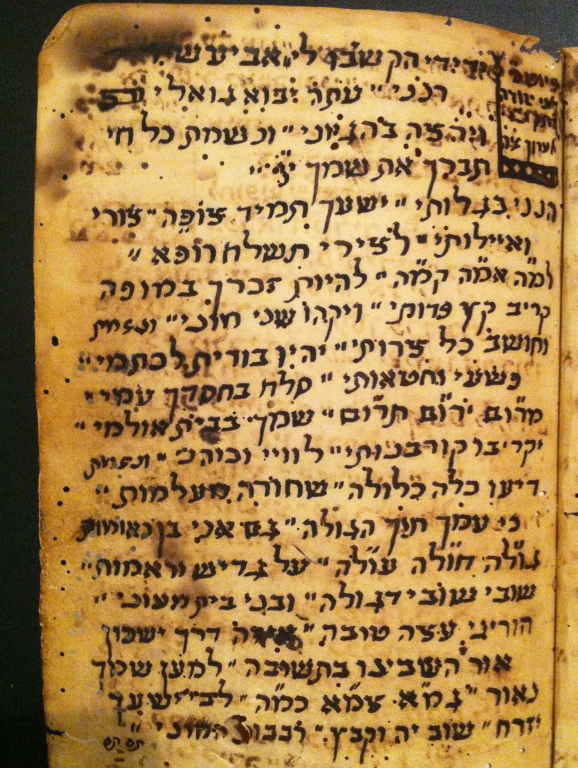 ידידי הקשב לי אביע
רנני עתר יבוא גואלי
בהגיוני ונשמת כל חי
תברך את שמך יי
הנני בגלותי ישעך תמיד צופה צורי
ואיילותי לצירי תשלח רופא
למה אמה קמה להיות זכרך במופה
קריב קץ פדותי ויקהו שני מוני ונשמת
וחושב כל צרותי יהיו בורית לכתמי
פשעי וחטאותי סלח בחסדך עמי
מרום ירום תרום שמך בבית אולמי
יקריבו קורבנותי לוויי וכוהני ונשמת
דיעו כלה כלולה שחורה מעלמות
כי עמך תוך הגולה גם אני בן נאומות
גולה חולה עולה על גדיש וראמות
שובי שובי דגולה ובני בית מעוני
הוריני עצה טובה דרך ישכון
אור השביבו בתשובה למען שמך
נאור גמא צמא כמה ישעך
יזרח שוב יה וקבץ